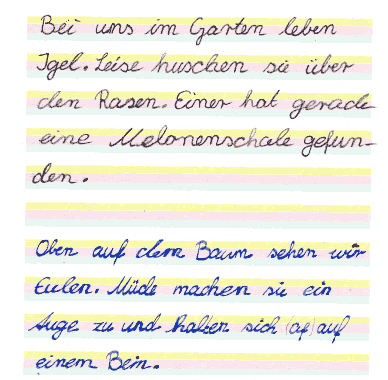 Bei uns im Garten leben
Igel. Leise huschen sie über
den Rasen. Einer hat gerade
eine Melonenschale gefun-
den.
Oben auf dem Baum sehen wir
Eulen. Müde machen sie ein
Auge zu und halten sich (af) auf
einem Bein.